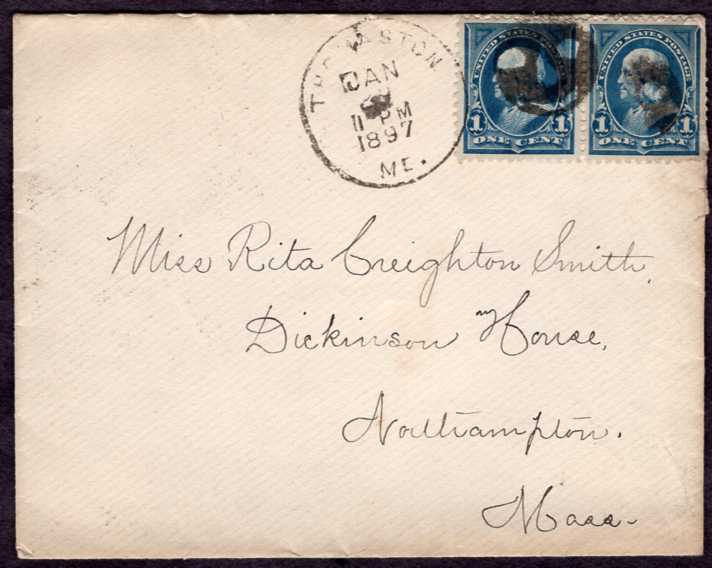 THOMASTON
JAN
11 PM
1897
ME.
UNITED STATES POSTAGE
1 ONE CENT 1
UNITED STATES POSTAGE
1 ONE CENT 1
Miss Rita Creighton Smith,
Dickinson House,
Northampton.
Mass.